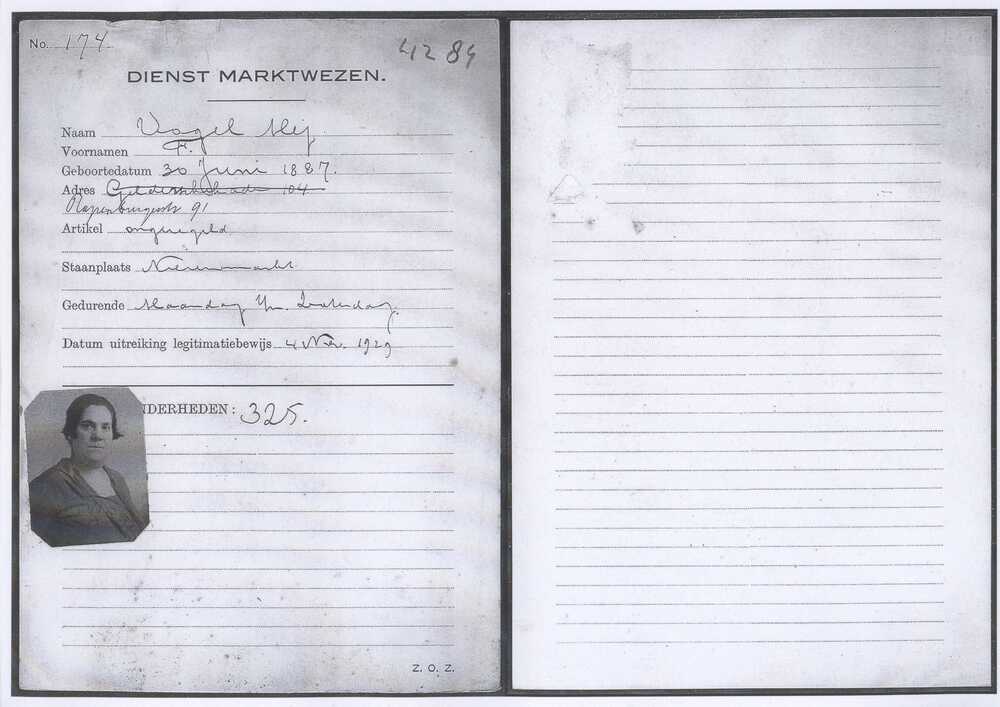 No. 174
4284
DIENST MARKTWEZEN.
Naam Vogel Mej
Voornamen F.
Geboortedatum 30 Juni 1887.
Adres Geldersche kade 104
Rapenburgerstr 91
Artikel ongeregeld
Staanplaats Nieuwmarkt
Gedurende Maandag t/m. Zaterdag.
Datum uitreiking legitimatiebewijs 4 Nov. 1929
NDERHEDEN: 325.
Z. O. Z.